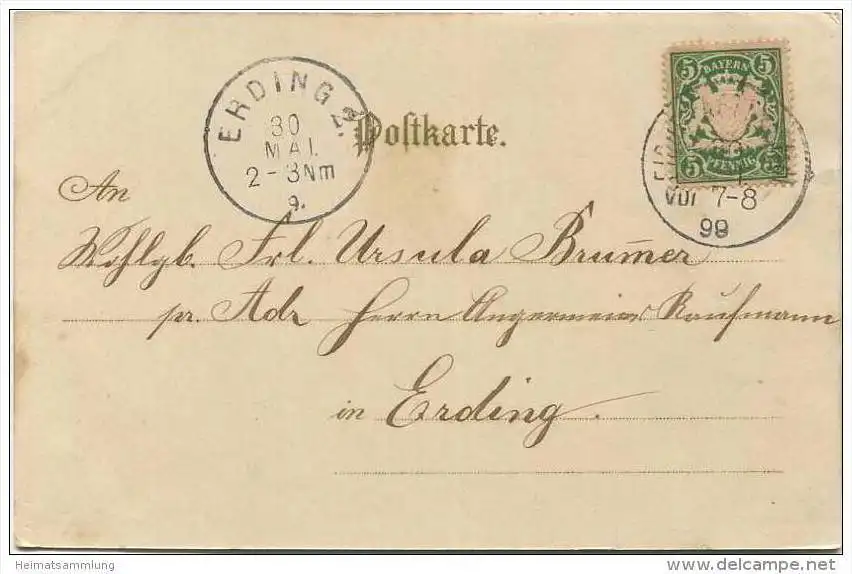 ERDING 2.
30
MAI.
2-3Nm
9.
Postkarte.
5 BAYERN 5
5 PFENNIG 5
Vor 7-8
99
An
Wohlgb. Frl. Ursula Brum̄er
pr. Adr Herrn Angermeier Kaufmann
in Erding.
Heimatsammlung
www.delcampe.net